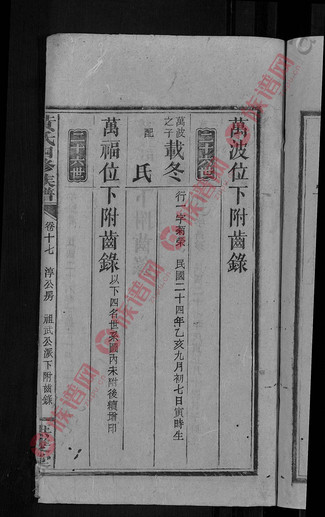 萬波位下附齒錄
三十六世
萬波之子 載冬 行一字菊榮 民國二十四年乙亥九月初七日寅時生
配 氏
萬福位下附齒錄 以下四名世系圖內未附後續增印
三十六世
黃氏四修族譜 卷十七 淳公房 祖武公派下附齒錄
族谱网